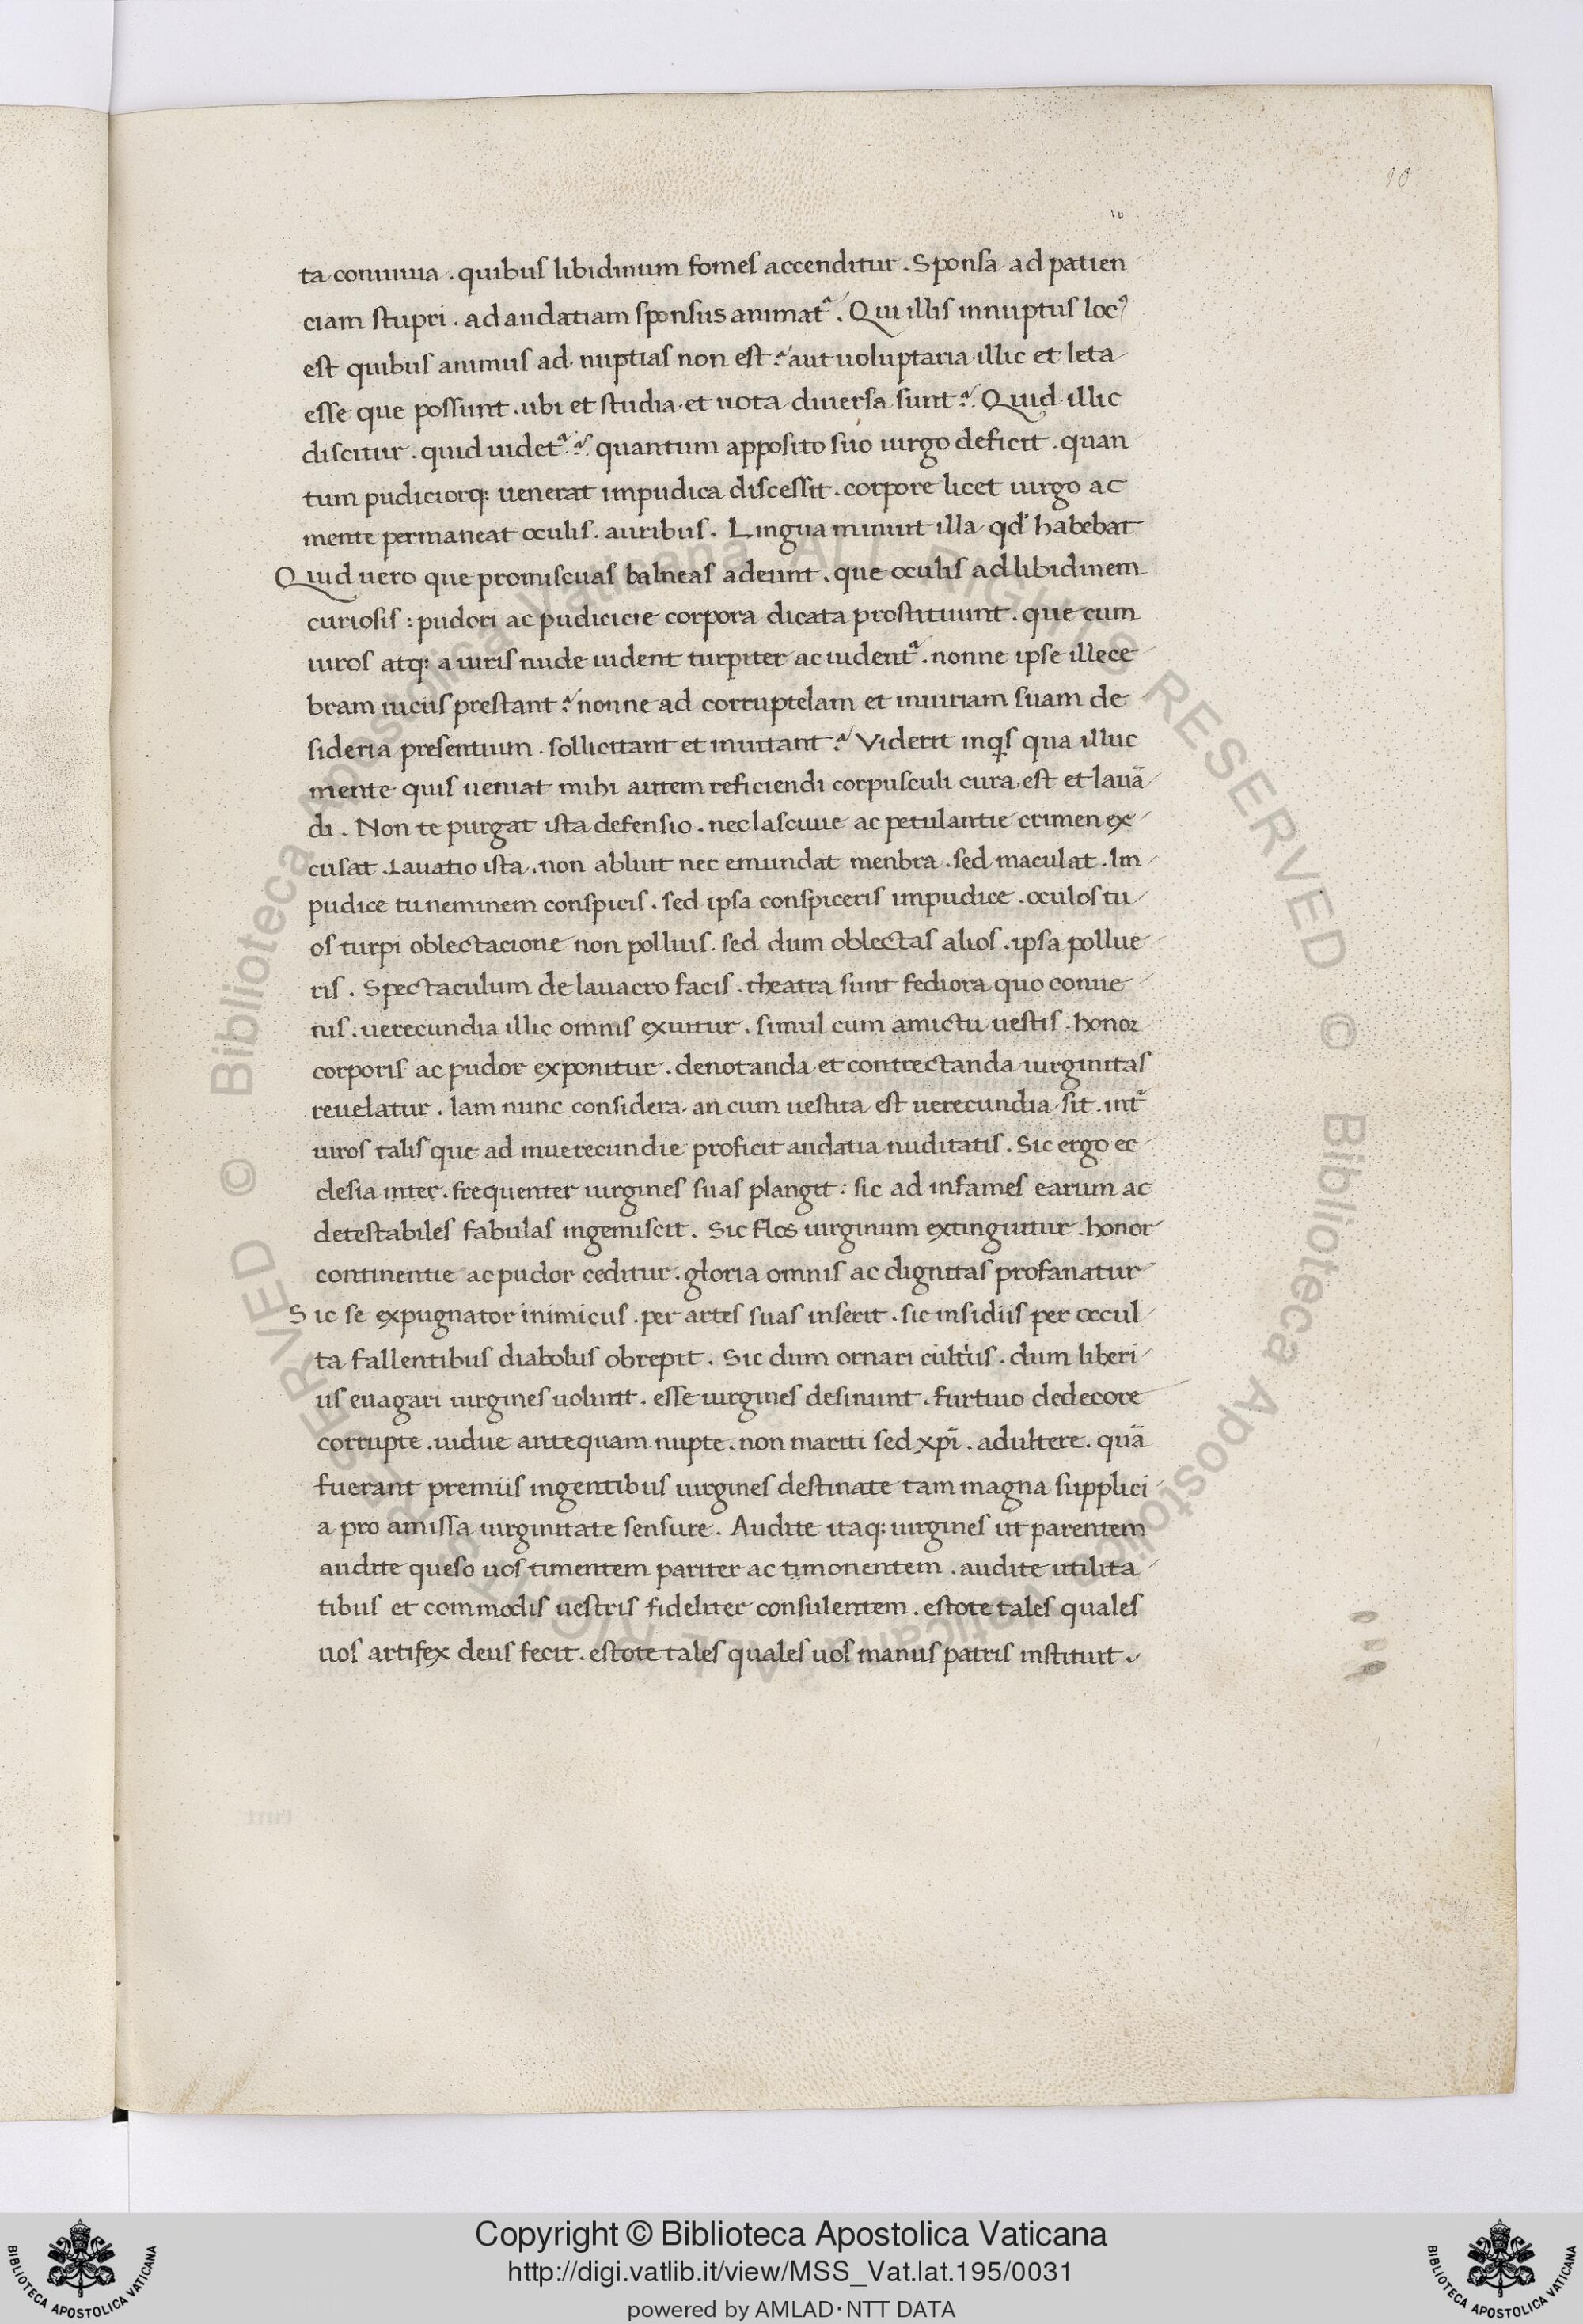 10
10
ta conuiuia . quibus libidinum fomes accenditur . Sponsa ad patien
ciam stupri . ad audatiam sponsus animat᷑ . Qui illis innuptus locꝰ
est quibus animus ad nuptias non est ? aut uoluptaria illic et leta
esse que possunt . ubi et studia et uota diuersa sunt ? Quid illic
discitur . quid uidet᷑ ? quantum apposito suo uirgo deficit . quan
tum pudiciorq: uenerat impudica discessit . corpore licet uirgo ac
mente permaneat oculis . auribus . Lingua minuit illa qd' habebat
Quid uero que promiscuas balneas adeunt . que oculis ad libidinem
curiosis : pudori ac pudicicie corpora dicata prostituunt . que cum
uiros atq: a uiris nude uident turpiter ac uident᷑ . nonne ipse illece
bram uiciis prestant ? nonne ad corruptelam et iniuriam suam de
sideria presentium . sollicitant et inuitant ? Viderit inqis qua illuc
mente quis ueniat mihi autem reficiendi corpusculi cura est et lauā
di . Non te purgat ista defensio . nec lasciuie ac petulantie crimen ex
cusat . Lauatio ista . non abluit nec emundat menbra . sed maculat . Im
pudice tu neminem conspicis . sed ipsa conspiceris impudice . oculos tu
os turpi oblectacione non polluis . sed dum oblectas alios . ipsa pollue
ris . Spectaculum de lauacro facis . theatra sunt fediora quo conue
nis . uerecundia illic omnis exuitur . simul cum amictu uestis honor
corporis ac pudor exponitur . denotanda et contrectanda uirginitas
reuelatur . Iam nunc considera an cum uestita est uerecundia sit . int᷑
uiros talis que ad inuerecundie proficit audatia nuditatis . Sic ergo ec
clesia inter . frequenter uirgines suas plangit : sic ad infames earum ac
detestabiles fabulas ingemiscit . Sic flos uirginum extinguitur honor
continentie ac pudor ceditur . gloria omnis ac dignitas profanatur
Sic se expugnator inimicus . per artes suas inserit . sic insidiis per occul
ta fallentibus diabolus obrepit . Sic dum ornari cultius . dum liberi
us euagari uirgines uolunt . esse uirgines desinunt . furtiuo dedecore
corrupte . uidue antequam nupte . non mariti sed xp̄i . adultere . quā
fuerant premiis ingentibus uirgines destinate tam magna supplici
a pro amissa uirginitate sensure . Audite itaq: uirgines ut parentem
audite queso uos timentem pariter ac timonentem . audite utilita
tibus et commodis uestris fideliter consulentem . estote tales quales
uos artifex deus fecit . estote tales quales uos manus patris instituit .
© Biblioteca Apostolica Vaticana ALL RIGHTS RESERVED © Biblioteca Apostolica Vaticana ALL RIGHTS RESERVED
Copyright © Biblioteca Apostolica Vaticana
http://digi.vatlib.it/view/MSS_Vat.lat.195/0031
powered by AMLAD·NTT DATA
BIBLIOTECA APOSTOLICA VATICANA
BIBLIOTECA APOSTOLICA VATICANA